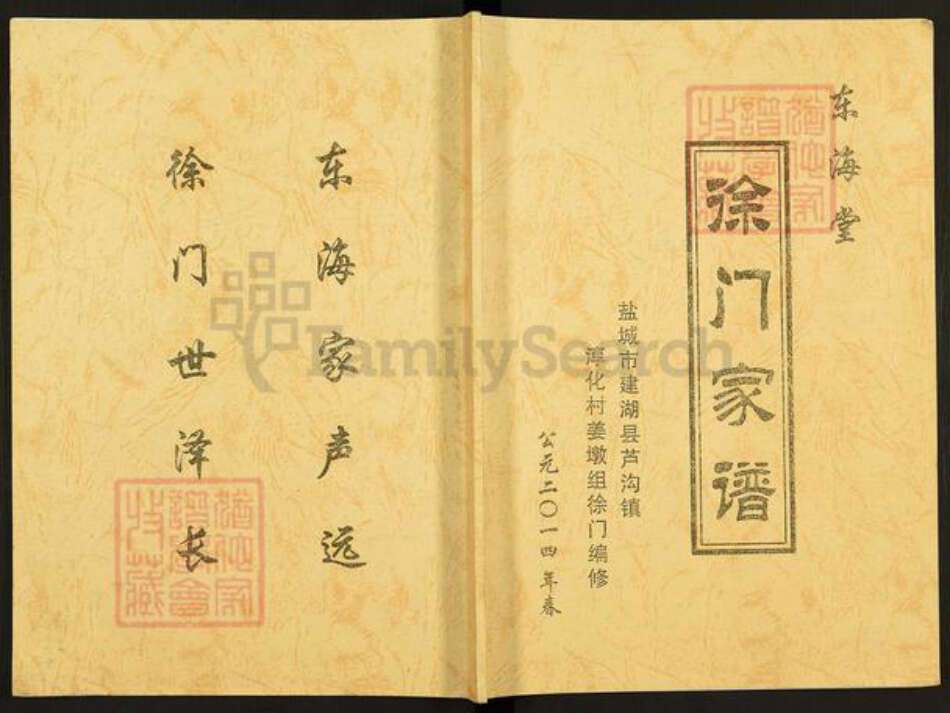 东海堂
徐门家谱
盐城市建湖县芦沟镇
淳化村姜墩组徐门编修
公元二〇一四年春
东海家声远
徐门世泽长
FamilySearch